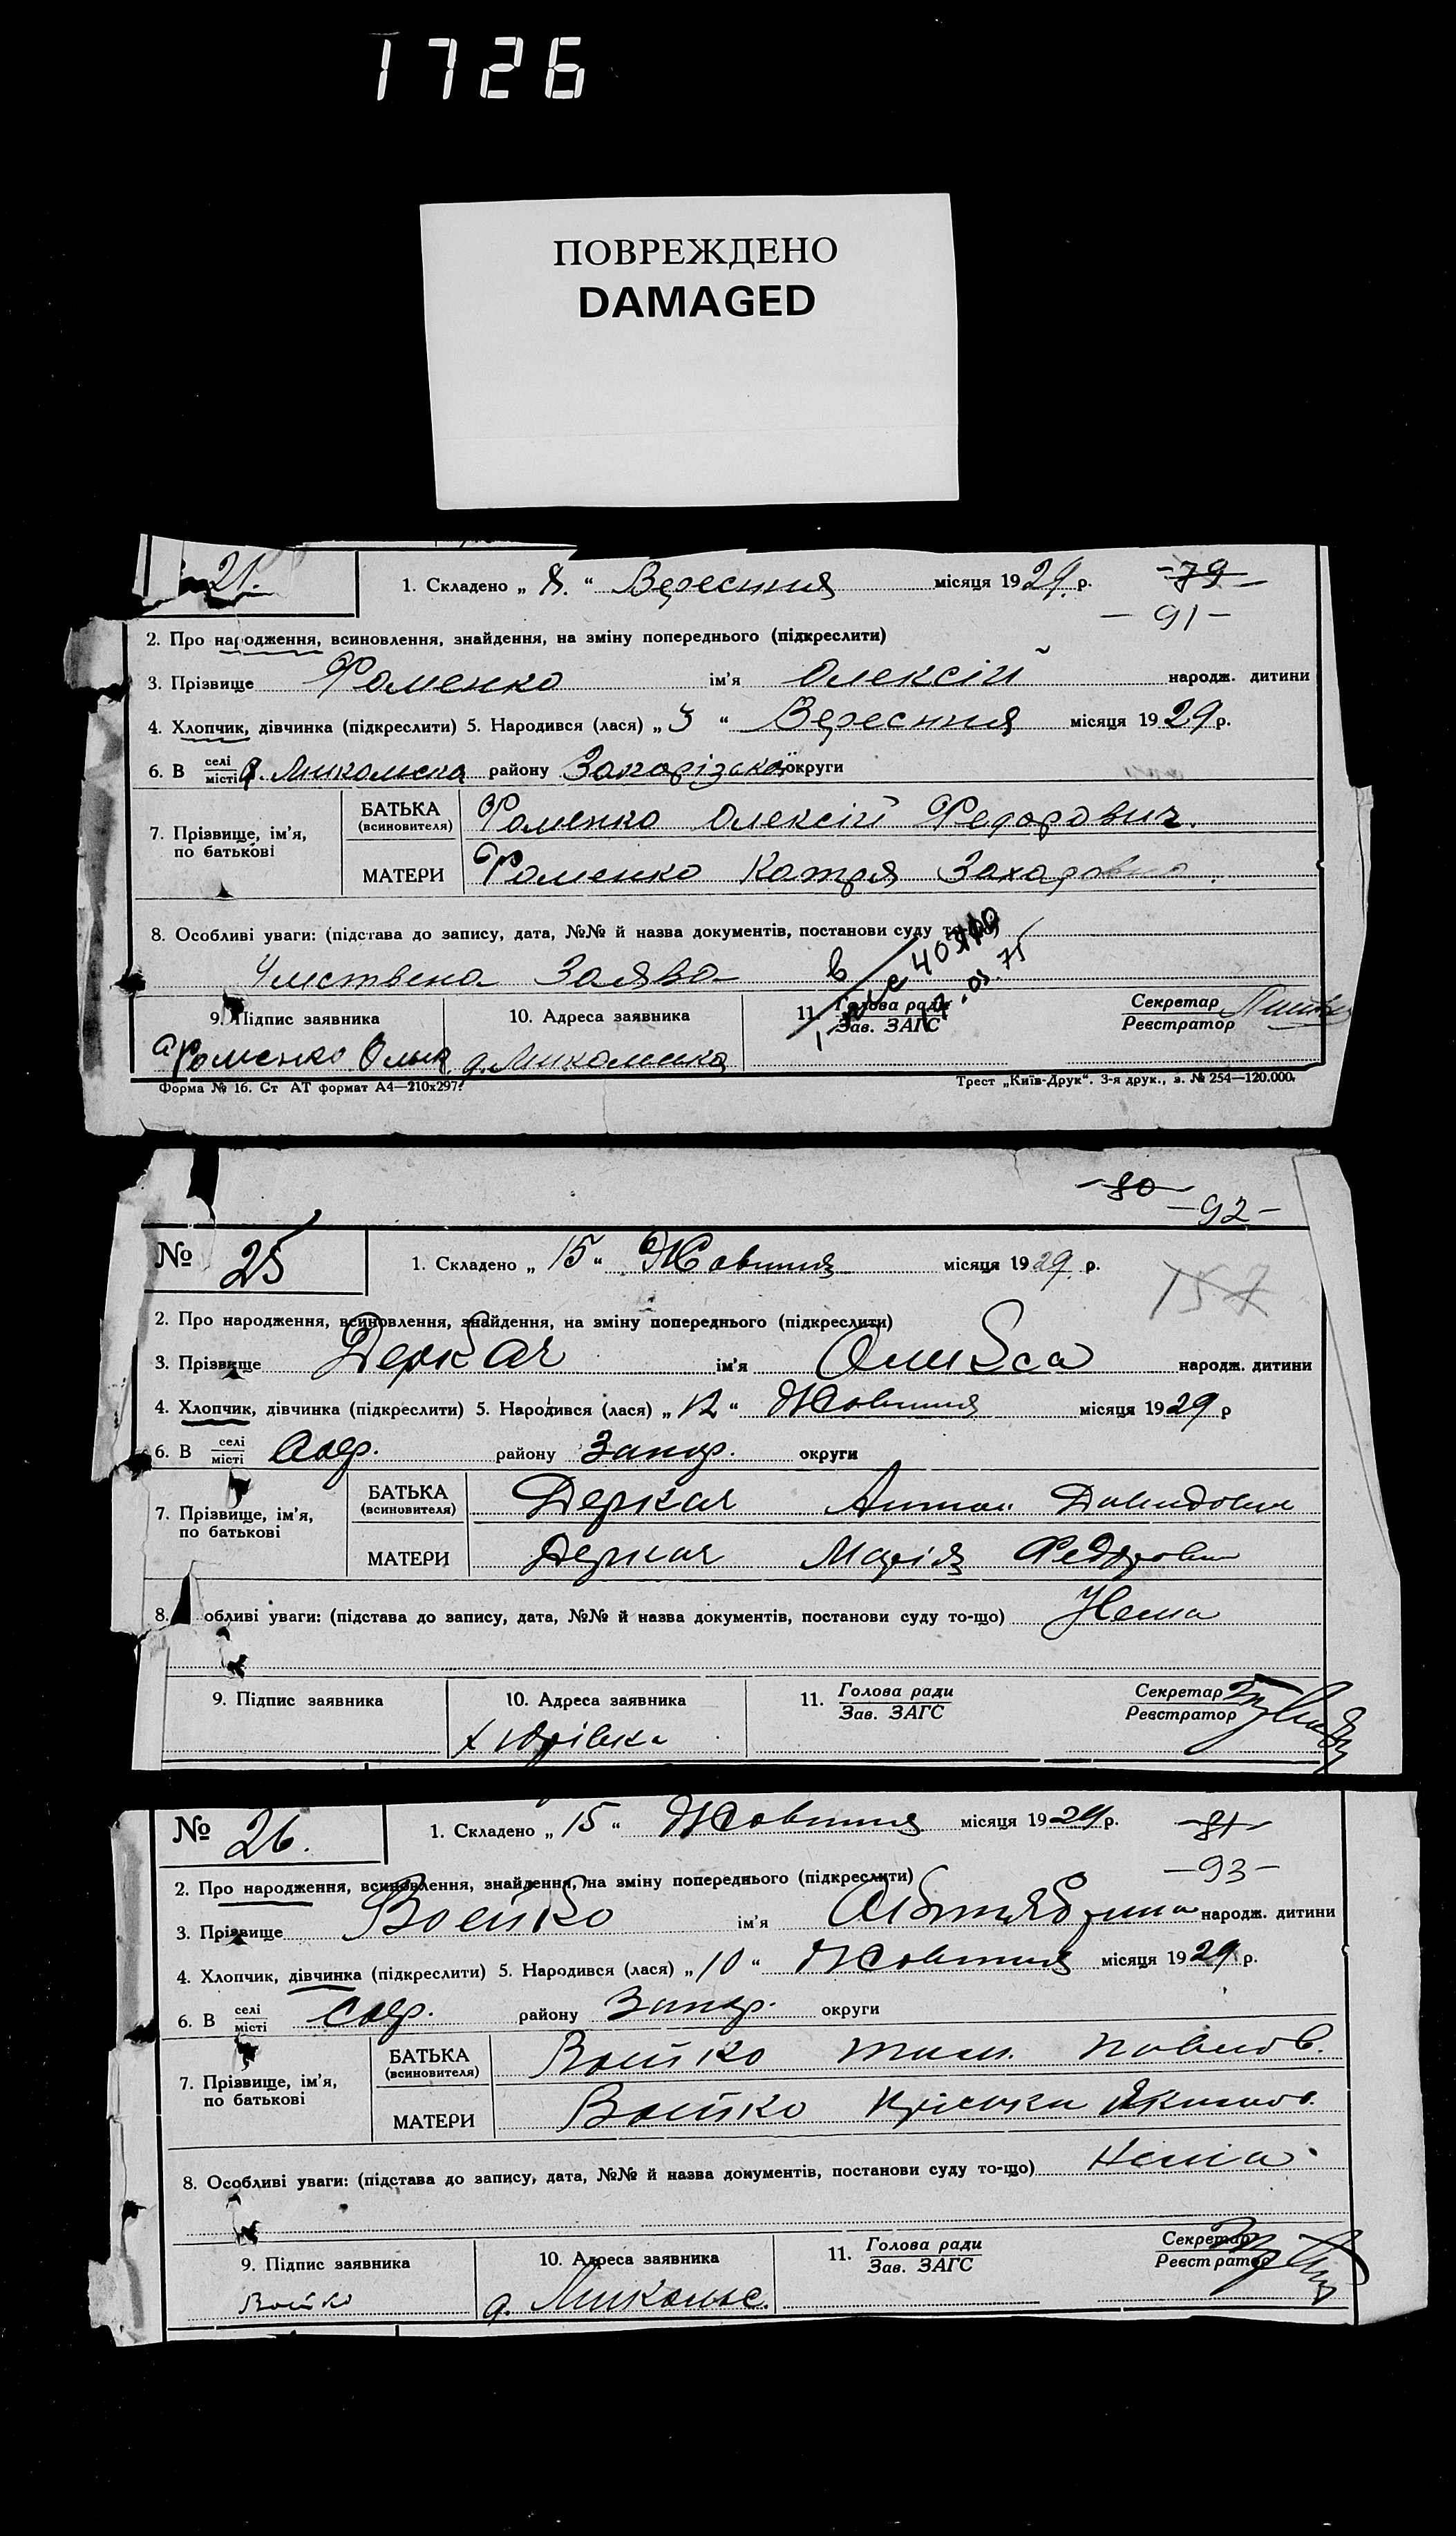 1726
ПОВРЕЖДЕНО
DAMAGED
21.
1. Складено „ 8. “ Вересния місяця 1929. р.
-79-
-91-
2. Про народження, всиновлення, знайдення, на зміну попереднього (підкреслити)
3. Прізвище Фоменко ім'я Олексій народж. дитини
4. Хлопчик, дівчинка (підкреслити) 5. Народився (лася) „ 3 “ Вересния місяця 1929 р.
6. В селі місті району округи
7. Прізвище, ім'я, по батькові
БАТЬКА (всиновителя) Фоменко Олексій Федорович.
МАТЕРИ Фоменко Катря Захаровна.
8. Особливі уваги: (підстава до запису, дата, №№ й назва документів, постанови суду
Заява
9. Підпис заявника 10. Адреса заявника 11. Голова ради Зав. ЗАГС Секретар Реєстратор
Фоменко
Форма № 16. Ст АТ формат А4—210х297. Трест „Київ-Друк“. 3-я друк., з. № 254—120.000.
-80-
-92-
№ 25
1. Складено „ 15 “ Жовтня місяця 1929. р.
157
2. Про народження, всиновлення, знайдення, на зміну попереднього (підкреслити)
3. Прізвище Деркач ім'я народж. дитини
4. Хлопчик, дівчинка (підкреслити) 5. Народився (лася) „ 12 “ Жовтня місяця 1929 р
6. В селі місті району Запор. округи
7. Прізвище, ім'я, по батькові
БАТЬКА (всиновителя) Деркач Антон Давидович
МАТЕРИ Деркач Марія
8. обливі уваги: (підстава до запису, дата, №№ й назва документів, постанови суду то-що) Нема
9. Підпис заявника 10. Адреса заявника 11. Голова ради Зав. ЗАГС Секретар Реєстратор
х Юрівка
№ 26.
1. Складено „ 15 “ Жовтня місяця 1929 р.
-81-
-93-
2. Про народження, всиновлення, знайдення, на зміну попереднього (підкреслити)
3. Прізвище Войко ім'я народж. дитини
4. Хлопчик, дівчинка (підкреслити) 5. Народився (лася) „ 10 “ Жовтня місяця 1929 р.
6. В селі місті району Запор. округи
7. Прізвище, ім'я, по батькові
БАТЬКА (всиновителя) Войко Павлов.
МАТЕРИ Войко Якимов.
8. Особливі уваги: (підстава до запису, дата, №№ й назва документів, постанови суду то-що) Нема
9. Підпис заявника 10. Адреса заявника 11. Голова ради Зав. ЗАГС Секретар Реєстратор
Войко